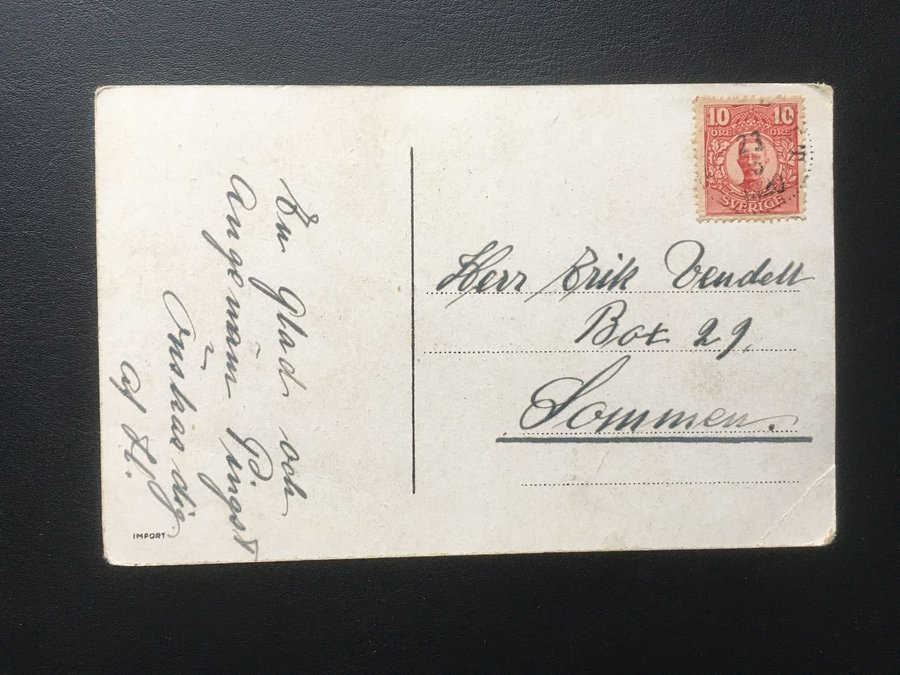 En Glad och
Angenäm Pingst
Önskas dig
af H.
IMPORT
10 10
ÖRE ÖRE
23
5
SVERIGE
Herr Erik Vendell
Box 29.
Sommen.